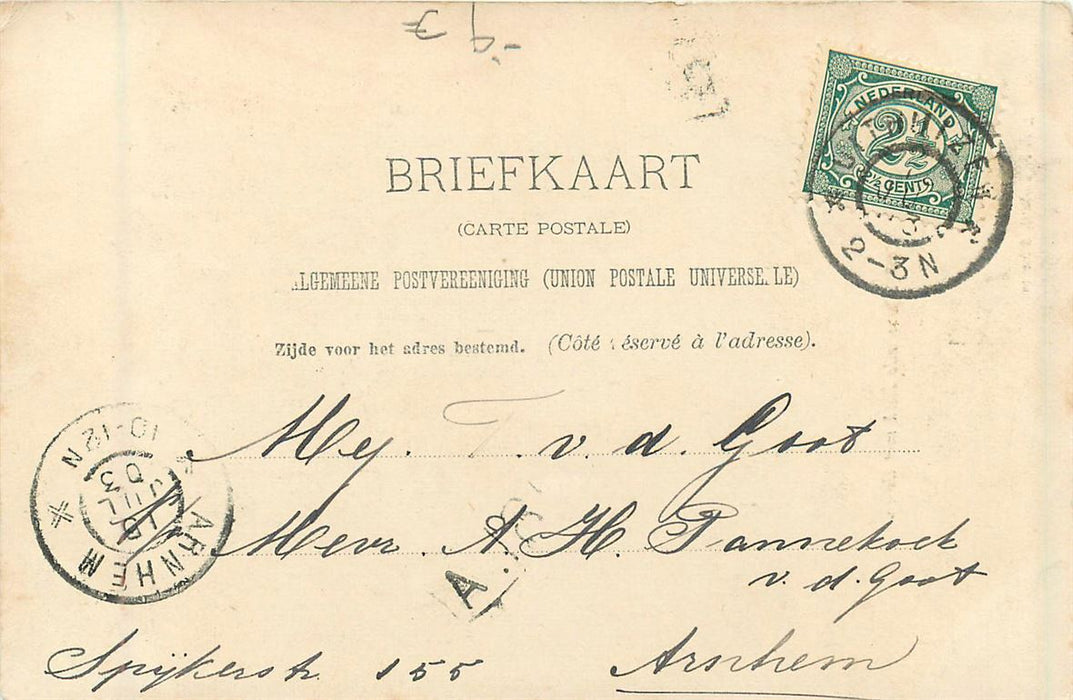 BRIEFKAART
(CARTE POSTALE)
ALGEMEENE POSTVEREENIGING (UNION POSTALE UNIVERSELLE)
Zijde voor het adres bestemd. (Côté réservé à l'adresse).
NEDERLAND
2½
2½ CENT
UITHUIZEN
2-3N
10-12N
JUL
03
ARNHEM
Mej. T. v. d. Goot
Mevr. A. H. Pannekoek
v. d. Goot
Spijkerstr. 155 Arnhem